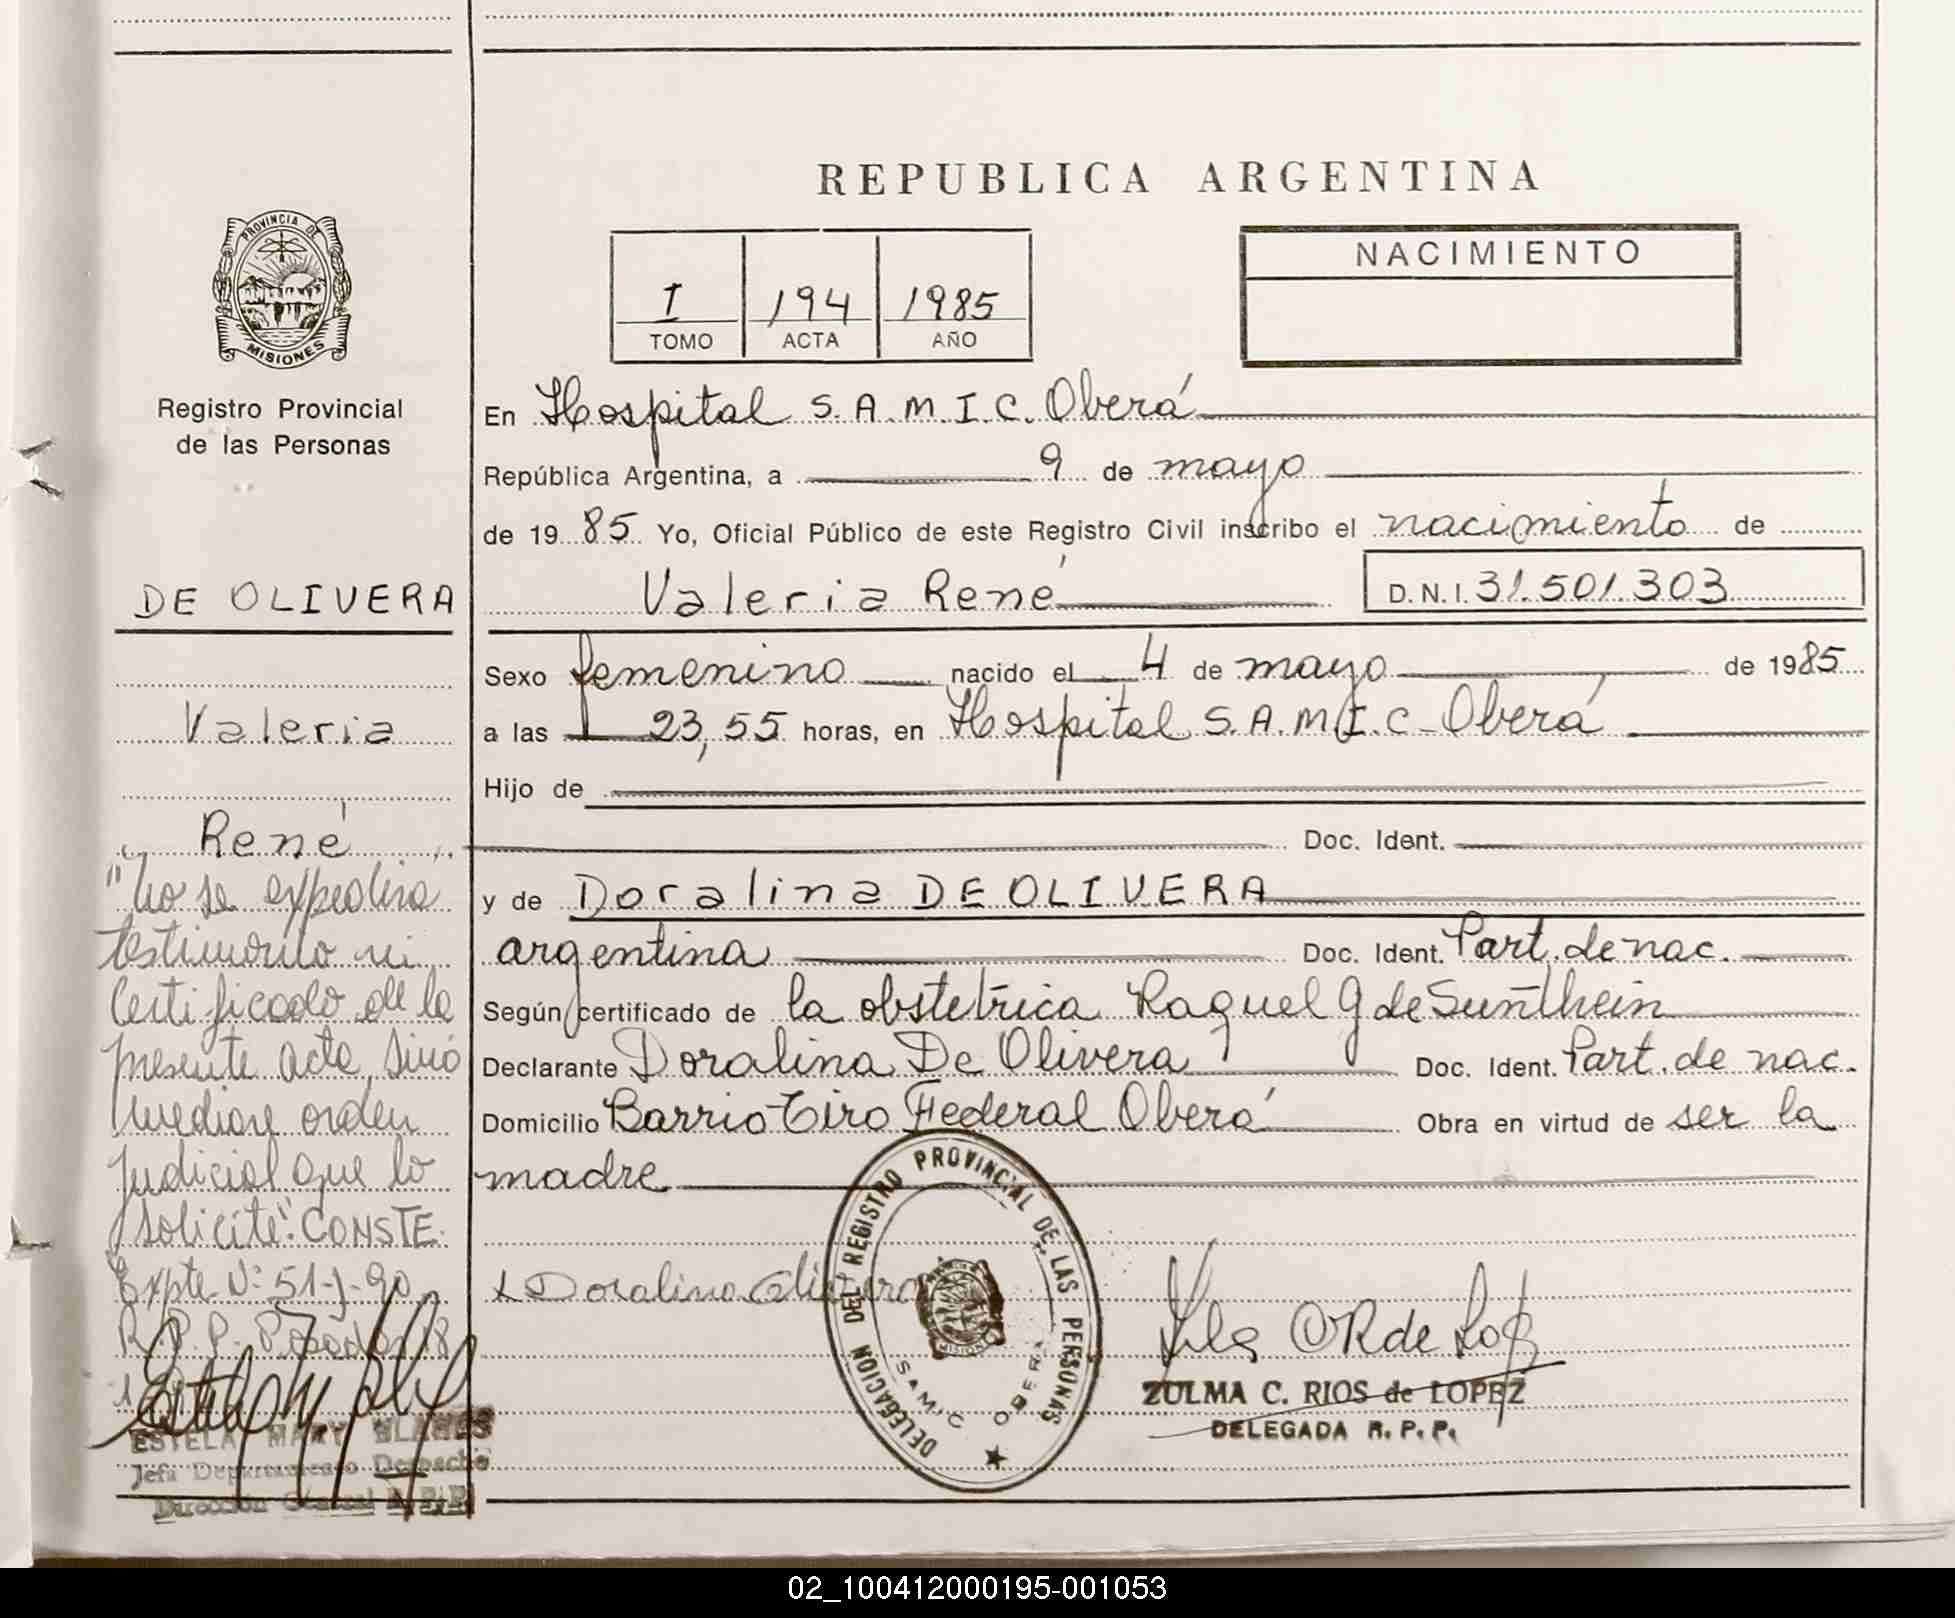 REPUBLICA ARGENTINA
PROVINCIA DE
MISIONES
Registro Provincial
de las Personas
I 194 1985
TOMO ACTA AÑO
NACIMIENTO
En Hospital S.A.M.I.C. Oberá
República Argentina, a 9 de mayo
de 1985 Yo, Oficial Público de este Registro Civil inscribo el nacimiento de
DE OLIVERA
Valeria René D.N.I. 31.501.303
Sexo femenino nacido el 4 de mayo de 1985
Valeria
a las 23,55 horas, en Hospital S.A.M.I.C - Oberá
Hijo de
René
Doc. Ident.
y de Doralina DE OLIVERA
argentina Doc. Ident. Part. de nac.
Según certificado de la obstetrica Raquel G de Sunthein
Declarante Doralina De Olivera Doc. Ident. Part. de nac.
Domicilio Barrio Tiro Federal Oberá Obra en virtud de ser la
madre
"No se expedira
testimonio ni
certificado de la
presente acta, sinó
mediare orden
judicial que lo
solicite". CONSTE.
Expte Nº 51-J-90
R.P.P. Posadas 18
Doralina Olivera
DELEGACION DEL REGISTRO PROVINCIAL DE LAS PERSONAS
SAMIC OBERA
MISIONES
ZULMA C. RIOS de LOPEZ
DELEGADA R.P.P.
ESTELA MARY BLANES
Jefa Departamento Despacho
Dirección General R.P.P.
02_100412000195-001053